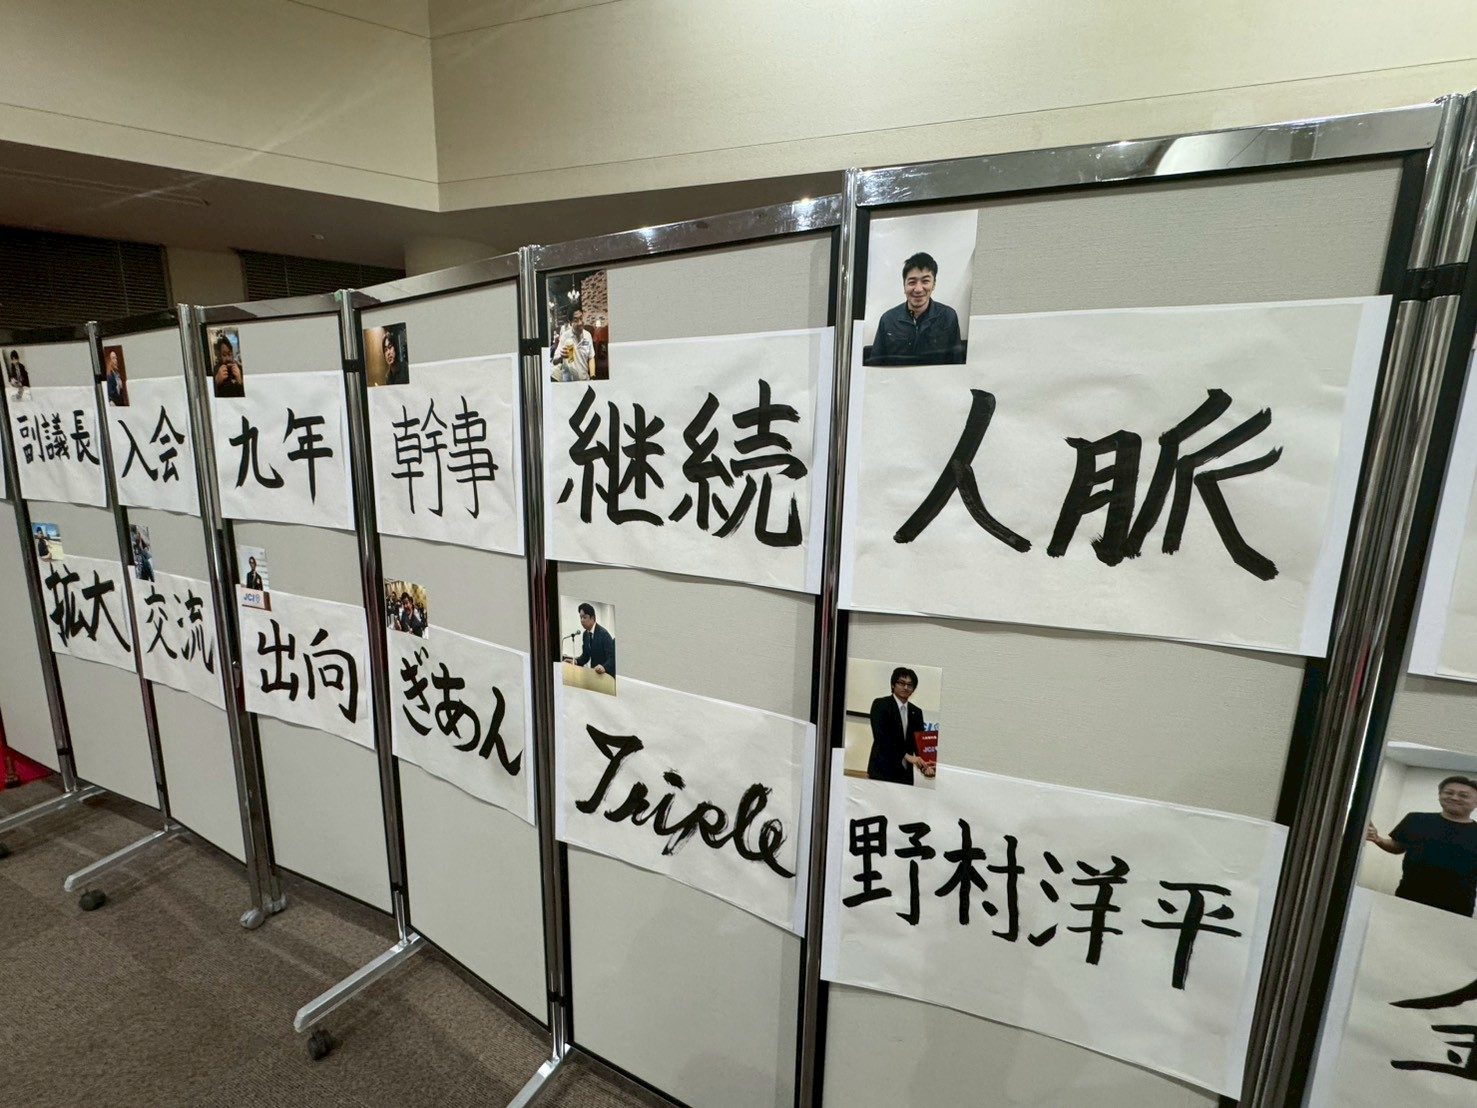 副議長
入会
九年
幹事
継続
人脈
拡大
交流
出向
ぎあん
Triple
野村洋平
JCI
JCI